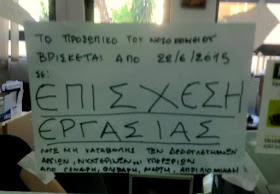 ΤΟ ΠΡΟΣΩΠΙΚΟ ΤΟΥ ΝΟΣΟΚΟΜΕΙΟΥ
ΒΡΙΣΚΕΤΑΙ ΑΠΟ 22/6/2015
ΣΕ:
ΕΠΙΣΧΕΣΗ
ΕΡΓΑΣΙΑΣ
ΛΟΓΩ ΜΗ ΚΑΤΑΒΟΛΗΣ ΤΩΝ ΔΕΔΟΥΛΕΥΜΕΝΩΝ
ΑΡΓΙΩΝ, ΝΥΧΤΕΡΙΝΩΝ
ΑΠΟ ΓΕΝΑΡΗ, ΦΛΕΒΑΡΗ, ΜΑΡΤΗ, ΑΠΡΙΛΙΟ, ΜΑΙΟ